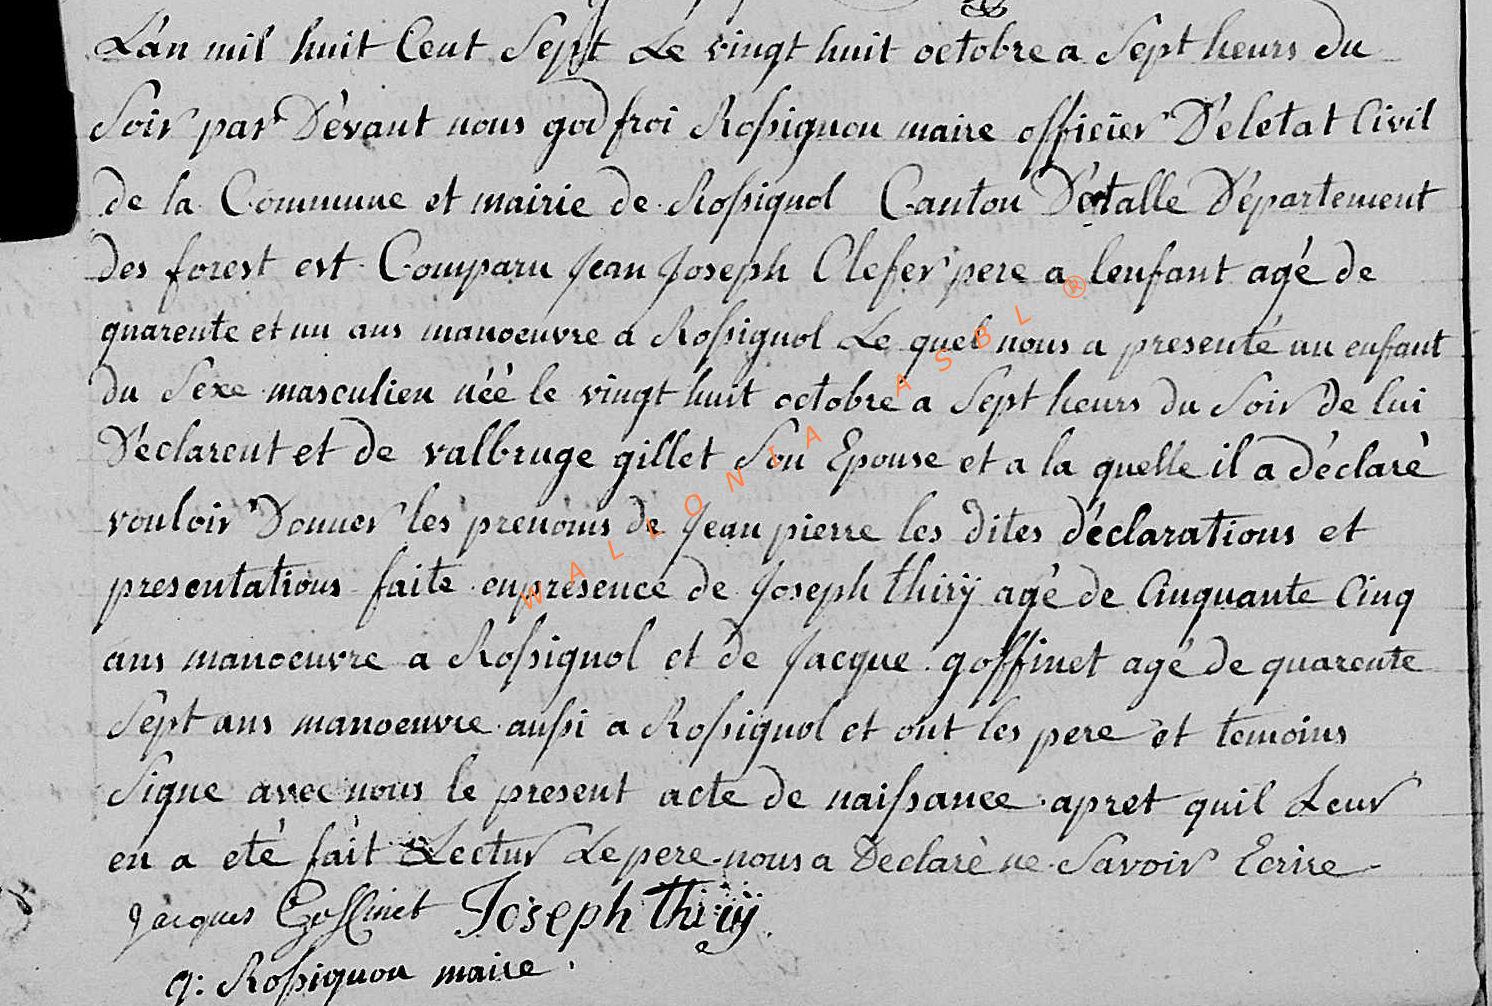 L'an mil huit Cent Sept Le vingt huit octobre a Sept heurs du
Soir par Dévant nous godfroi Rossignon maire officier D'eletat Civil
de la Commune et mairie de Rossignol Canton D'etalle Département
des forest est Comparu Jean Joseph Clefer pere a lenfant agé de
quarente et un ans manoeuvre a Rossignol Le quel nous a presenté un enfant
du Sexe masculien néé le vingt huit octobre a Sept heurs du Soir de lui
Déclarent et de valbruge gillet Son Epouse et a la quelle il a déclaré
vouloir Donner les prenoms de Jean pierre les dites déclarations et
presentations faite en presence de Joseph thirÿ agé de Cinquante Cinq
ans manoeuvre a Rossignol et de Jacque goffinet agé de quarente
Sept ans manoeuvre aussi a Rossignol et ont les pere et temoins
Signe avec nous le present acte de naissance apret quil Leur
en a eté fait Lectur Le pere nous a Declaré ne Savoir Ecrire
Jacques Goffinet Joseph thirÿ
g: Rossignon maire
WALLONIA ASBL ®